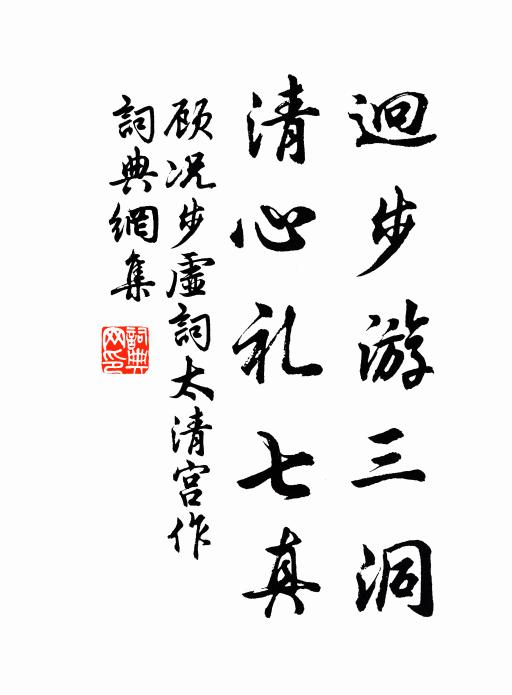 迥步游三洞
清心礼七真
顾况步虚詞太清宫作
詞典網集
詞典
网印